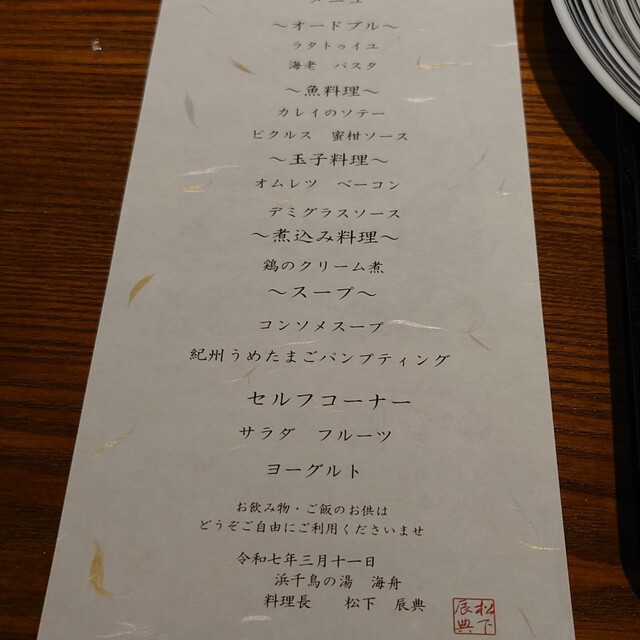 メニュー
～オードブル～
ラタトゥイユ
海老　パスタ
～魚料理～
カレイのソテー
ピクルス　蜜柑ソース
～玉子料理～
オムレツ　ベーコン
デミグラスソース
～煮込み料理～
鶏のクリーム煮
～スープ～
コンソメスープ
紀州うめたまごパンプティング
セルフコーナー
サラダ　フルーツ
ヨーグルト
お飲み物・ご飯のお供は
どうぞご自由にご利用くださいませ
令和七年三月十一日
浜千鳥の湯　海舟
料理長　松下　辰典
松下
辰典